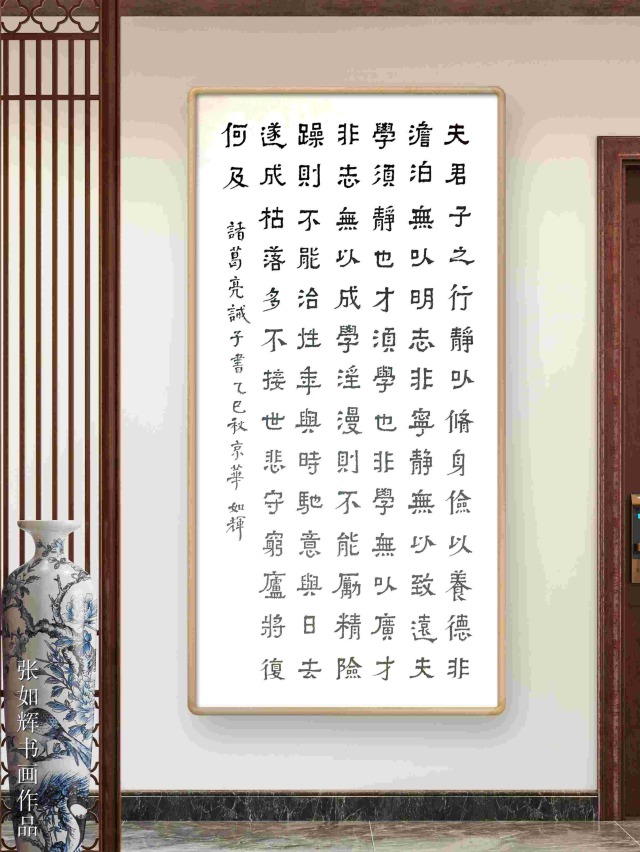 夫君子之行靜以脩身儉以養德非
澹泊無以明志非寧靜無以致遠夫
學須靜也才須學也非學無以廣才
非志無以成學淫漫則不能勵精險
躁則不能治性年與時馳意與日去
遂成枯落多不接世悲守窮廬將復
何及
諸葛亮誡子書乙巳秋京華如輝
张如辉书画作品